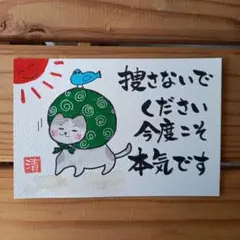 捜さないで
ください
今度こそ
本気です
清